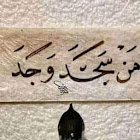 مَن سَجَدَ وَجَدَ